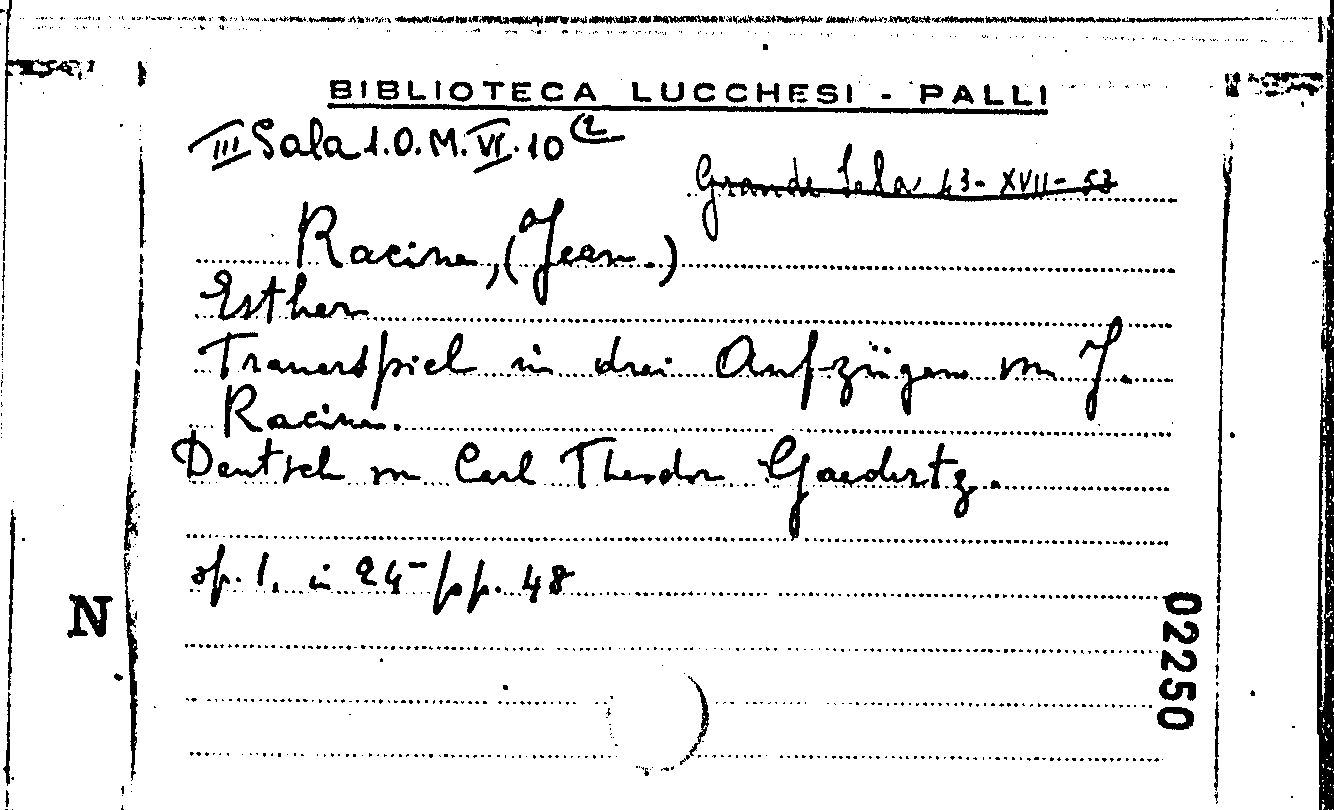 BIBLIOTECA LUCCHESI - PALLI
III Sala 1.O.M.VI.10(2
Grande Sala 43-XVII-53
Racine, (Jean.)
Esther
Trauerspiel in drei Aufzügen von J.
Racine.
Deutsch von Carl Theodor Gaedertz.
op. 1, in 24- pp. 48
N
02250